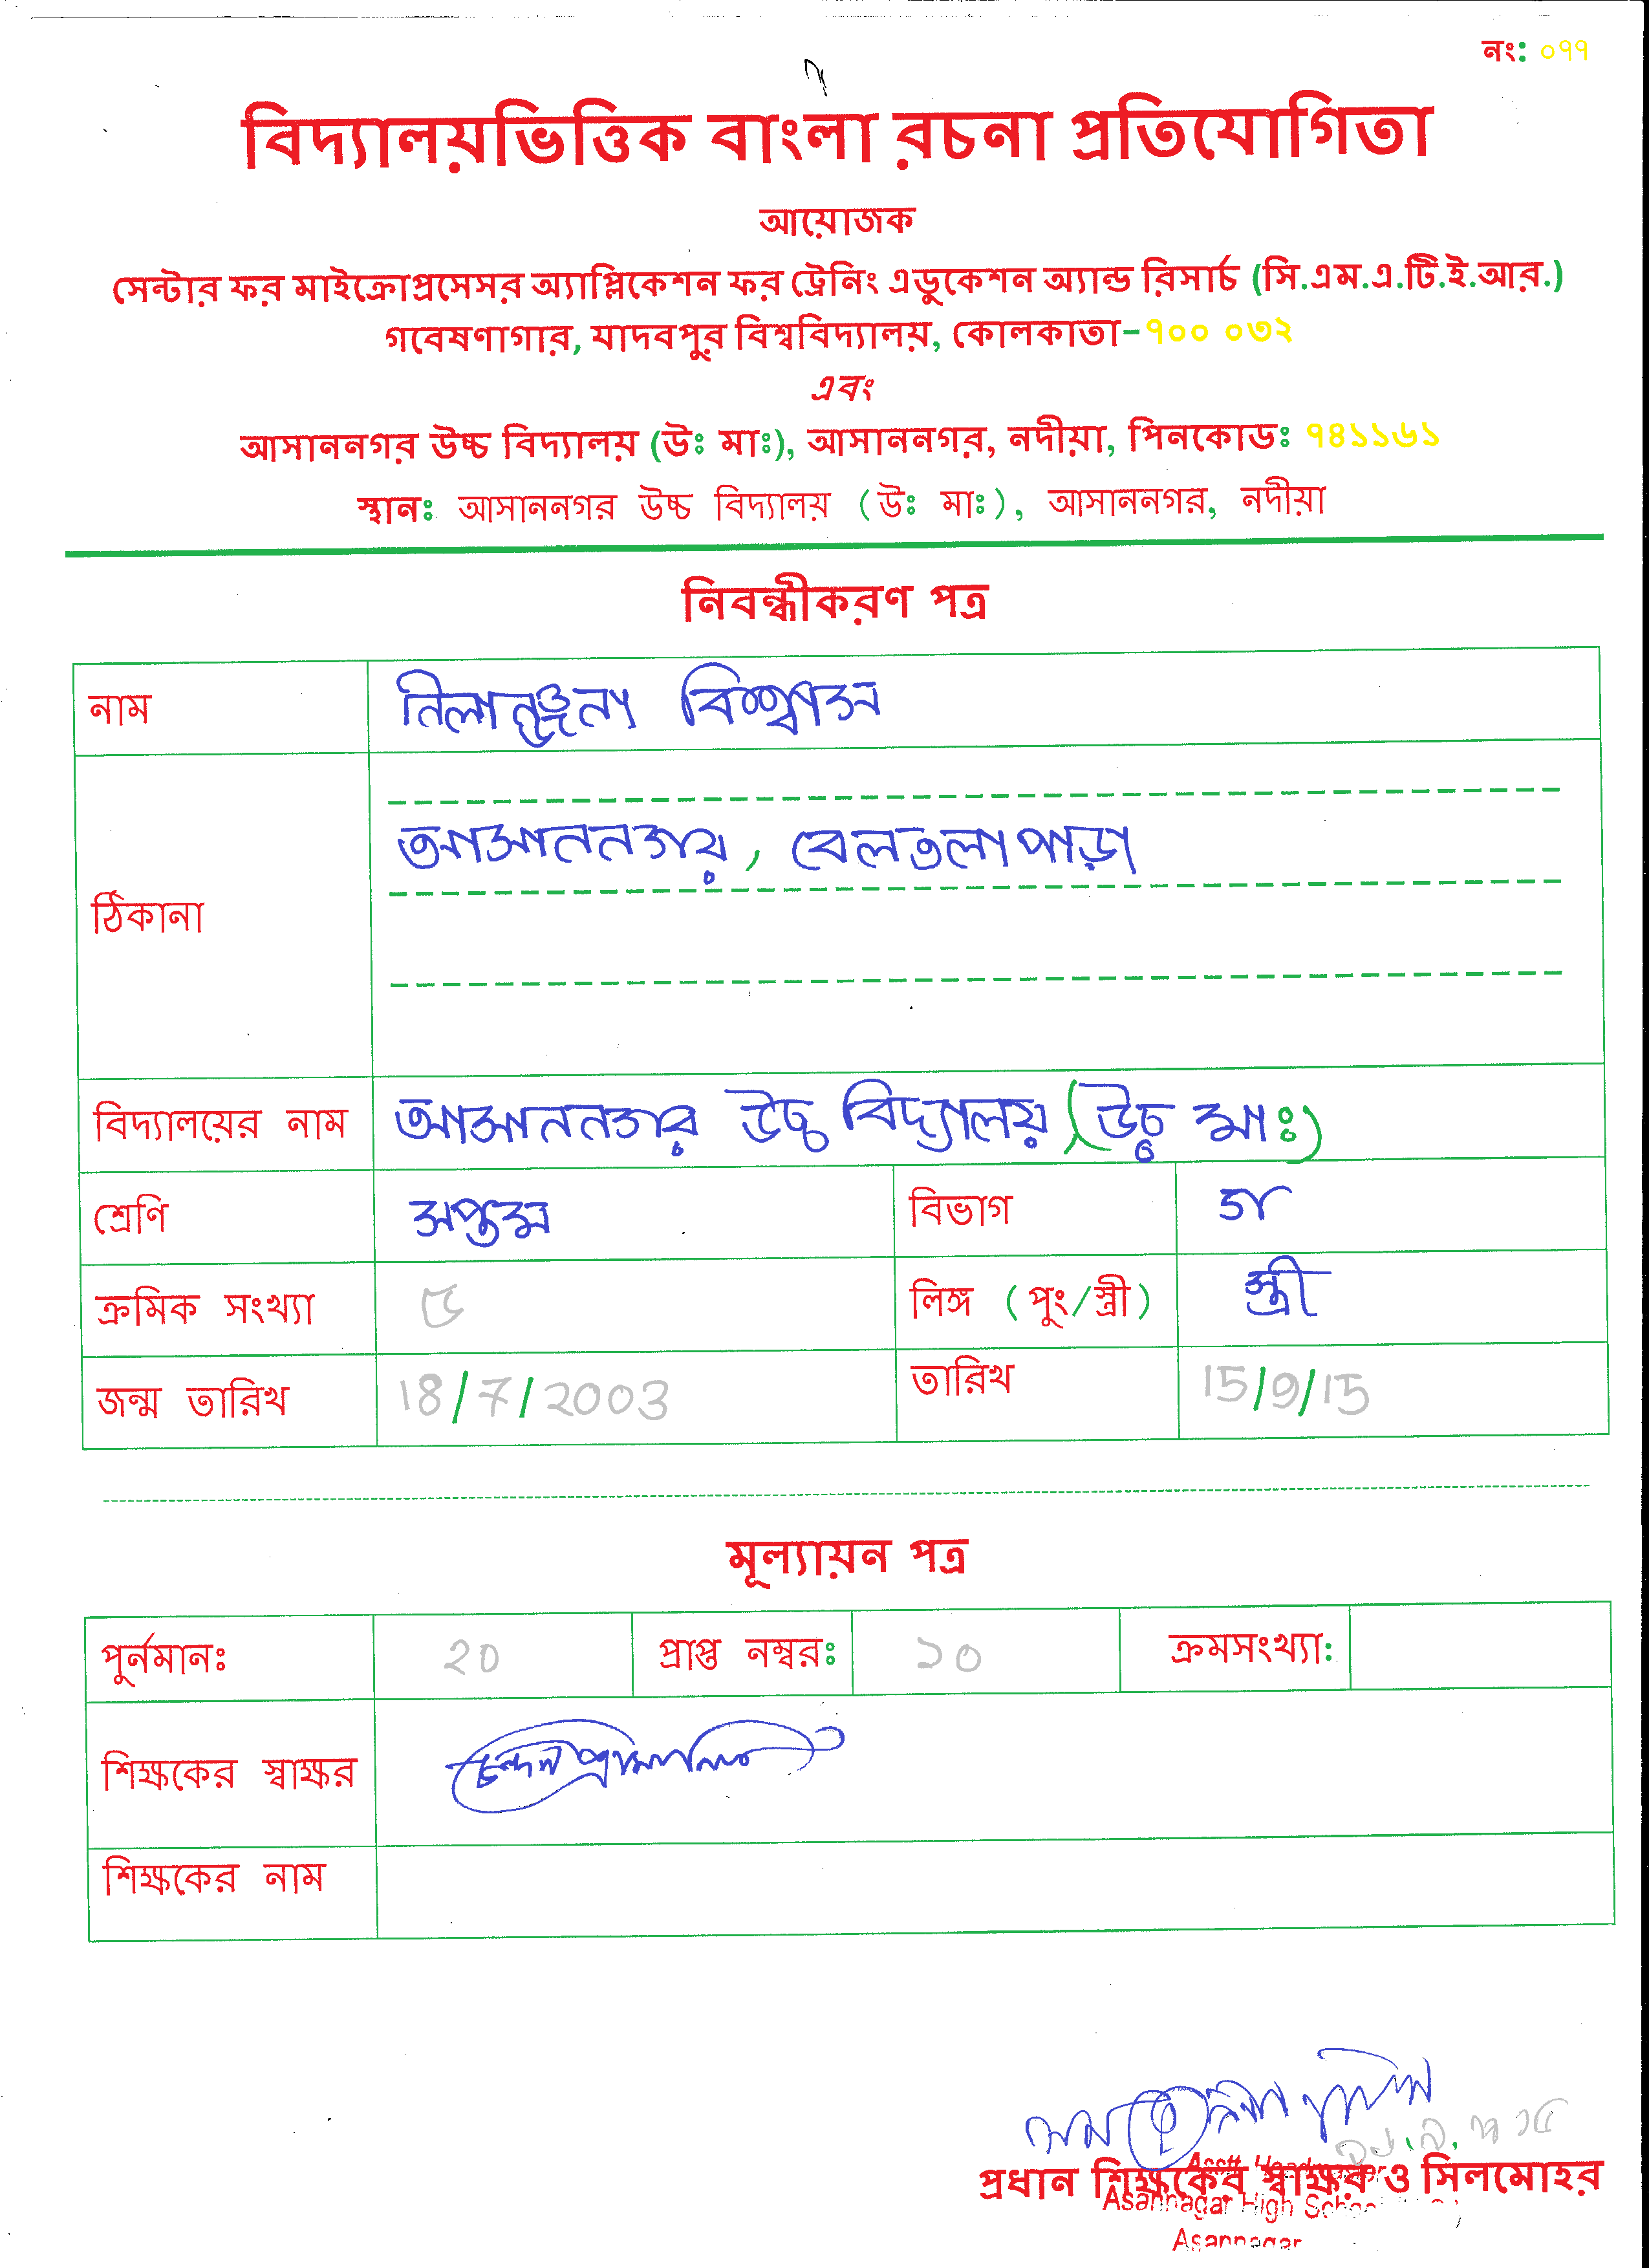 নং: ০৭৭
বিদ্যালয়ভিত্তিক বাংলা রচনা প্রতিযোগিতা
আয়োজক
সেন্টার ফর মাইক্রোপ্রসেসর অ্যাপ্লিকেশন ফর ট্রেনিং এডুকেশন অ্যান্ড রিসার্চ (সি.এম.এ.টি.ই.আর.)
গবেষণাগার, যাদবপুর বিশ্ববিদ্যালয়, কোলকাতা-৭০০ ০৩২
এবং
আসাননগর উচ্চ বিদ্যালয় (উঃ মাঃ), আসাননগর, নদীয়া, পিনকোডঃ ৭৪১১৬১
স্থানঃ আসাননগর উচ্চ বিদ্যালয় (উঃ মাঃ), আসাননগর, নদীয়া
নিবন্ধীকরণ পত্র
নাম নিলাঞ্জনা বিশ্বাস
ঠিকানা আসাননগর, বেলতলা পাড়া
বিদ্যালয়ের নাম আসাননগর উচ্চ বিদ্যালয় (উচ্চ মাঃ)
শ্রেণি সপ্তম বিভাগ গ
ক্রমিক সংখ্যা ৫ লিঙ্গ (পুং/স্ত্রী) স্ত্রী
জন্ম তারিখ 18/7/2003 তারিখ 15/9/15
মূল্যায়ন পত্র
পুর্নমানঃ 20 প্রাপ্ত নম্বরঃ ১০ ক্রমসংখ্যা:
শিক্ষকের স্বাক্ষর চন্দন প্রামানিক
শিক্ষকের নাম
প্রধান শিক্ষকের স্বাক্ষর ও সিলমোহর
Asstt. Headmaster
Asannagar High School
Asannagar